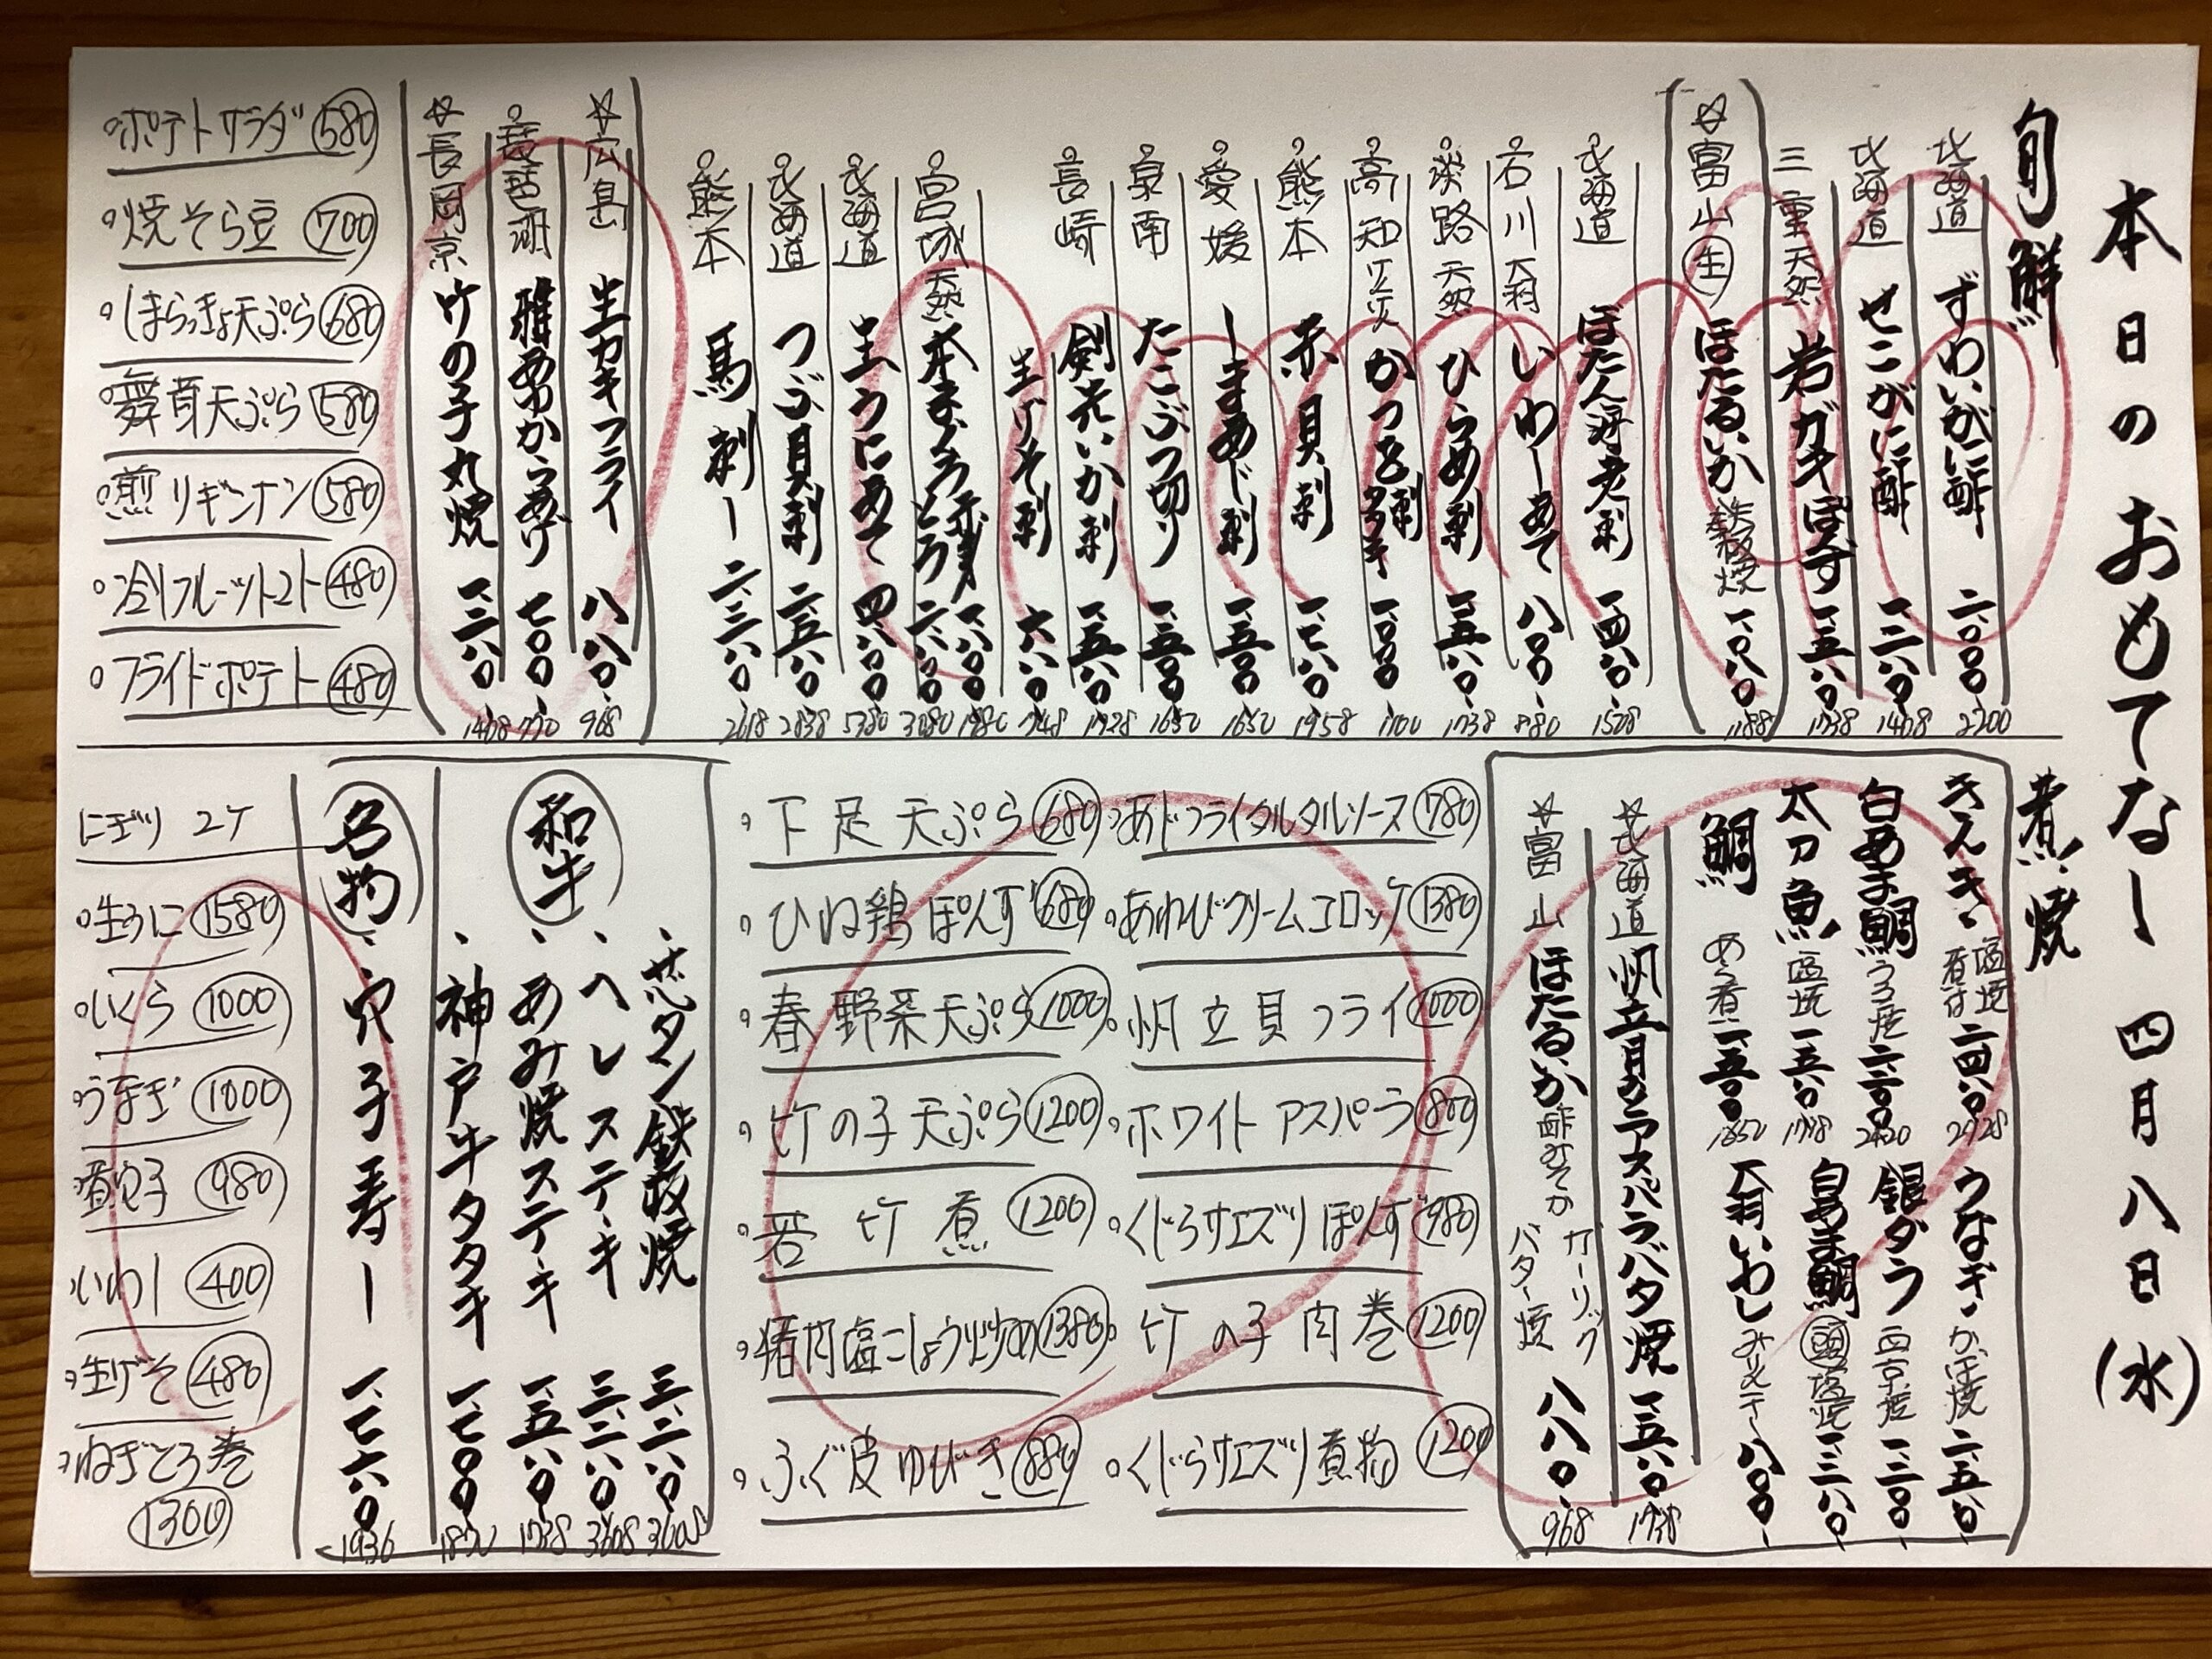 本日のおもてなし 四月八日(水)
旬鮮
北海道 ずわいがに酢 二、〇〇〇 2200
北海道 せこがに酢 一、二八〇 1408
三重天然 岩ガキぽんず 一、五八〇 1738
☆富山 生 ほたるいか 鉄板焼 一、〇八〇 1188
北海道 ぼたん海老刺 一、四八〇
石川 大羽 いわしあて 八〇〇 880
淡路 天然 ひらめ刺 一、五八〇 1738
高知 かつを刺 タタキ 一、〇〇〇 1100
熊本 赤貝刺 一、七八〇 1958
愛媛 しまあじ刺 一、五〇〇 1650
泉南 たこぶつ切り 一、五〇〇 1650
長崎 剣先いか刺 一、五八〇
生げそ刺 六八〇 748
宮城 天然 本まぐろ 赤身 一、八〇〇 1980
とろ 二、八〇〇 3080
北海道 生うにあて 四、八〇〇
北海道 つぶ貝刺 二、五八〇 2838
熊本 馬刺し 二、三八〇 2618
☆広島 生カキフライ 八八〇 968
琵琶湖 稚あゆからあげ 七〇〇 770
☆長岡京 竹の子丸焼 一、二八〇 1408
ポテトサラダ 580
焼そら豆 700
しまらっきょ天ぷら 680
舞茸天ぷら 580
煎りギンナン 580
冷フルーツトマト 480
フライドポテト 480
煮・焼
きんき 塩焼 煮付 二、四八〇
白あま鯛 うろこ焼 二、二〇〇 2420
太刀魚 塩焼 一、五八〇 1738
鯛 あら煮 一、五〇〇 1650
うなぎ かば焼 二、五八〇
銀ダラ 西京焼 一、三〇〇
白あま鯛 頭 塩焼 一、三八〇
大羽いわし 八〇〇
☆北海道 帆立貝とアスパラバタ焼 一、五八〇 1738
☆富山 ほたるいか 酢みそか ガーリックバター焼 八八〇 968
あじフライタルタルソース 780
あわびクリームコロッケ 1380
帆立貝フライ 1000
ホワイトアスパラ 800
くじらサエズリぽんず 980
竹の子肉巻 1200
くじらサエズリ煮物 1200
下足天ぷら 680
ひね鶏ぽんず 680
春野菜天ぷら 1000
竹の子天ぷら 1200
若竹煮 1200
猪肉塩こしょう炒め 1380
ふぐ皮ゆびき 880
和牛
タン鉄板焼 三、二八〇 3608
ヘレステーキ 三、二八〇 3608
あみ焼ステーキ 一、五八〇 1738
神戸牛タタキ 一、七〇〇 1870
名物
穴子寿し 一、七六〇 1936
にぎり 2ケ
生うに 1580
いくら 1000
うなぎ 1000
煮穴子 980
いわし 400
生げそ 480
ねぎとろ巻
1300